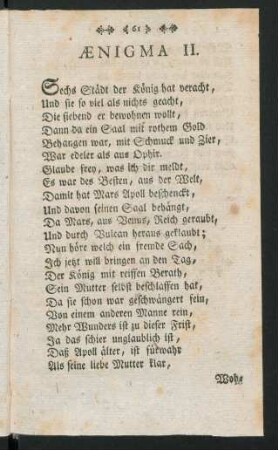 61
ÆNIGMA II.
Sechs Städt der König hat veracht,
Und sie so viel als nichts geacht,
Die siebend er bewohnen wollt,
Dann da ein Saal mit rothem Gold
Behangen war, mit Schmuck und Zier,
War edeler als aus Ophir.
Glaube frey, was ich dir meldt,
Es war des Besten, aus der Welt,
Damit hat Mars Apoll beschenckt,
Und davon seinen Saal behängt,
Da Mars, aus Venus, Reich geraubt,
Und durch Vulcan heraus geklaubt;
Nun höre welch ein fremde Sach,
Ich jetzt will bringen an den Tag,
Der König mit reiffen Berath,
Sein Mutter selbst beschlaffen hat,
Da sie schon war geschwängert sein,
Von einem anderen Manne rein,
Mehr Wunders ist zu dieser Frist,
Ja das schier unglaublich ist,
Daß Apoll älter, ist fürwahr
Als seine liebe Mutter klar,
Wohs